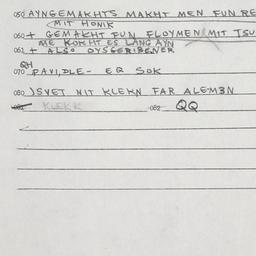 050 AYNGEMAKHTS MAKHT MEN FUN RE
(MIT HONIK
060 + GEMAKHT FUN FLOYMEN MIT TSU
ME KOKHT ES LANG AYN
061 + ALSO OYSGERIBENER
QH
070 PAVIDLE- ER SOK
080 JSVET NIT KLEKN FAR ALEMEN
KLEKK 082 QQ